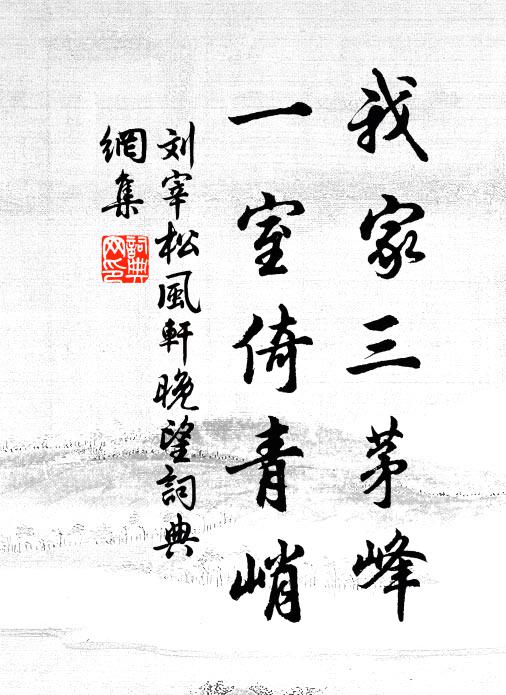 我家三茅峰
一室倚青峭
刘宰松風軒晚望詞典
網集
詞典网印